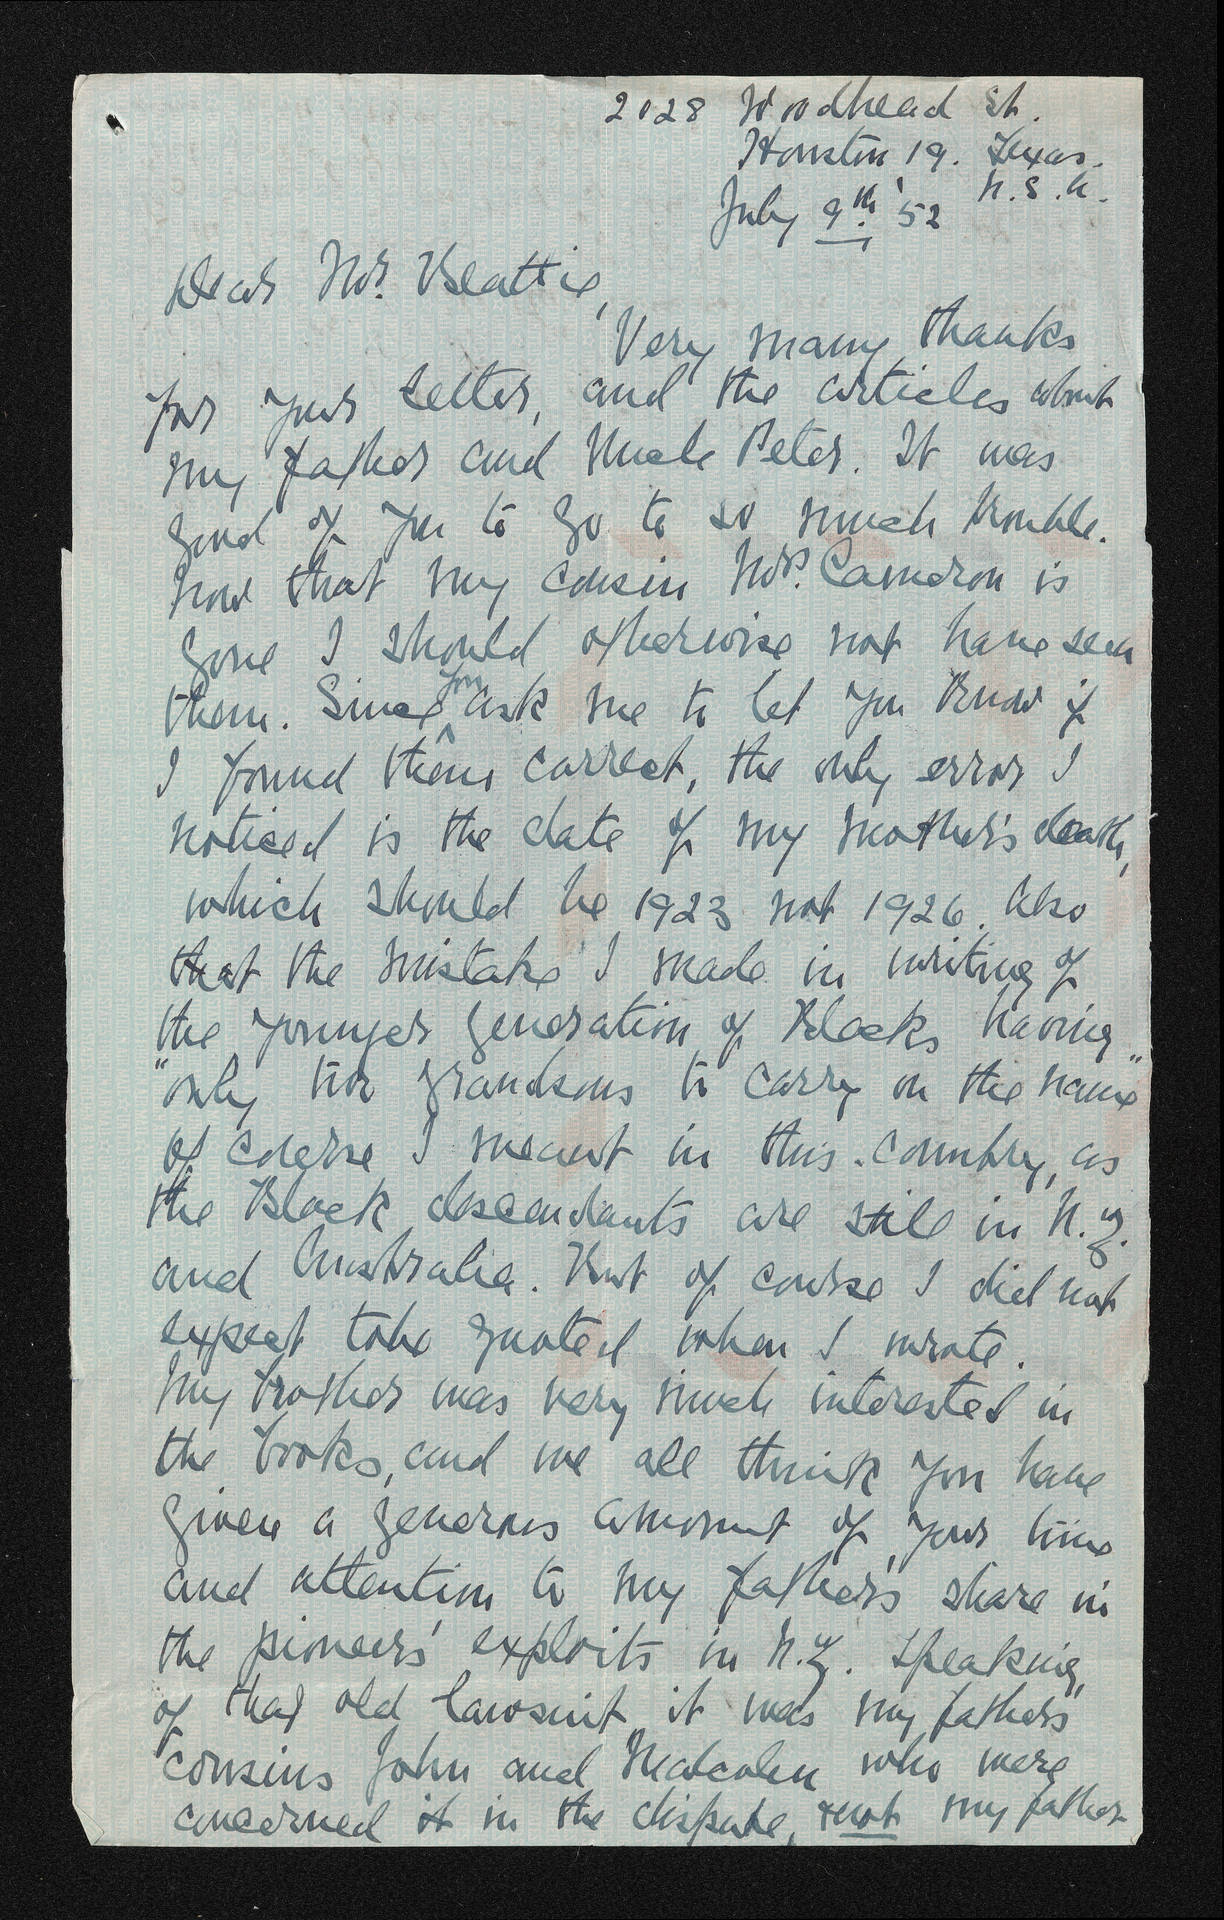 2128 Woodhead St.
Houston 19. Texas.
U.S.A.
July 9th '52
Dear Mr. Beattie,
Very many thanks
for your letter, and the articles about
my father and Uncle Peter. It was
good of you to go to so much trouble.
Now that my cousin Mrs. Cameron is
gone I should otherwise not have seen
them. Since you ask me to let you know if
I found them correct, the only error I
noticed is the date of my mother's death,
which should be 1923 not 1926. Also
that the mistake I made in writing of
the younger generation of Blacks having
"only two grandsons to carry on the name"
of course I meant in this country, as
the Black descendants are still in N.Z.
and Australia. But of course I did not
expect to be quoted when I wrote.
My brother was very much interested in
the books, and we all think you have
given a generous amount of your time
and attention to my father's share in
the pioneers' exploits in N.Z. Speaking
of that old lawsuit it was my father's
cousins John and Malcolm who were
concerned in the dispute, not my father